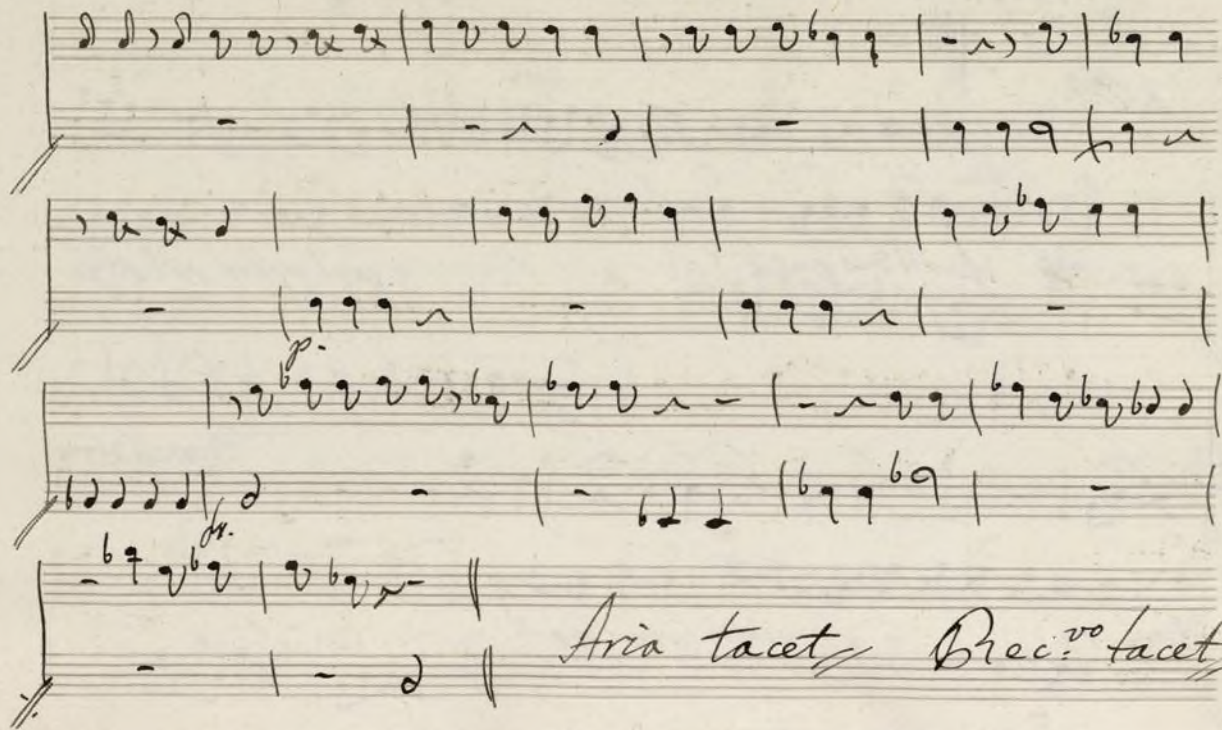 p.
fr.
Aria tacet Rec:vo tacet